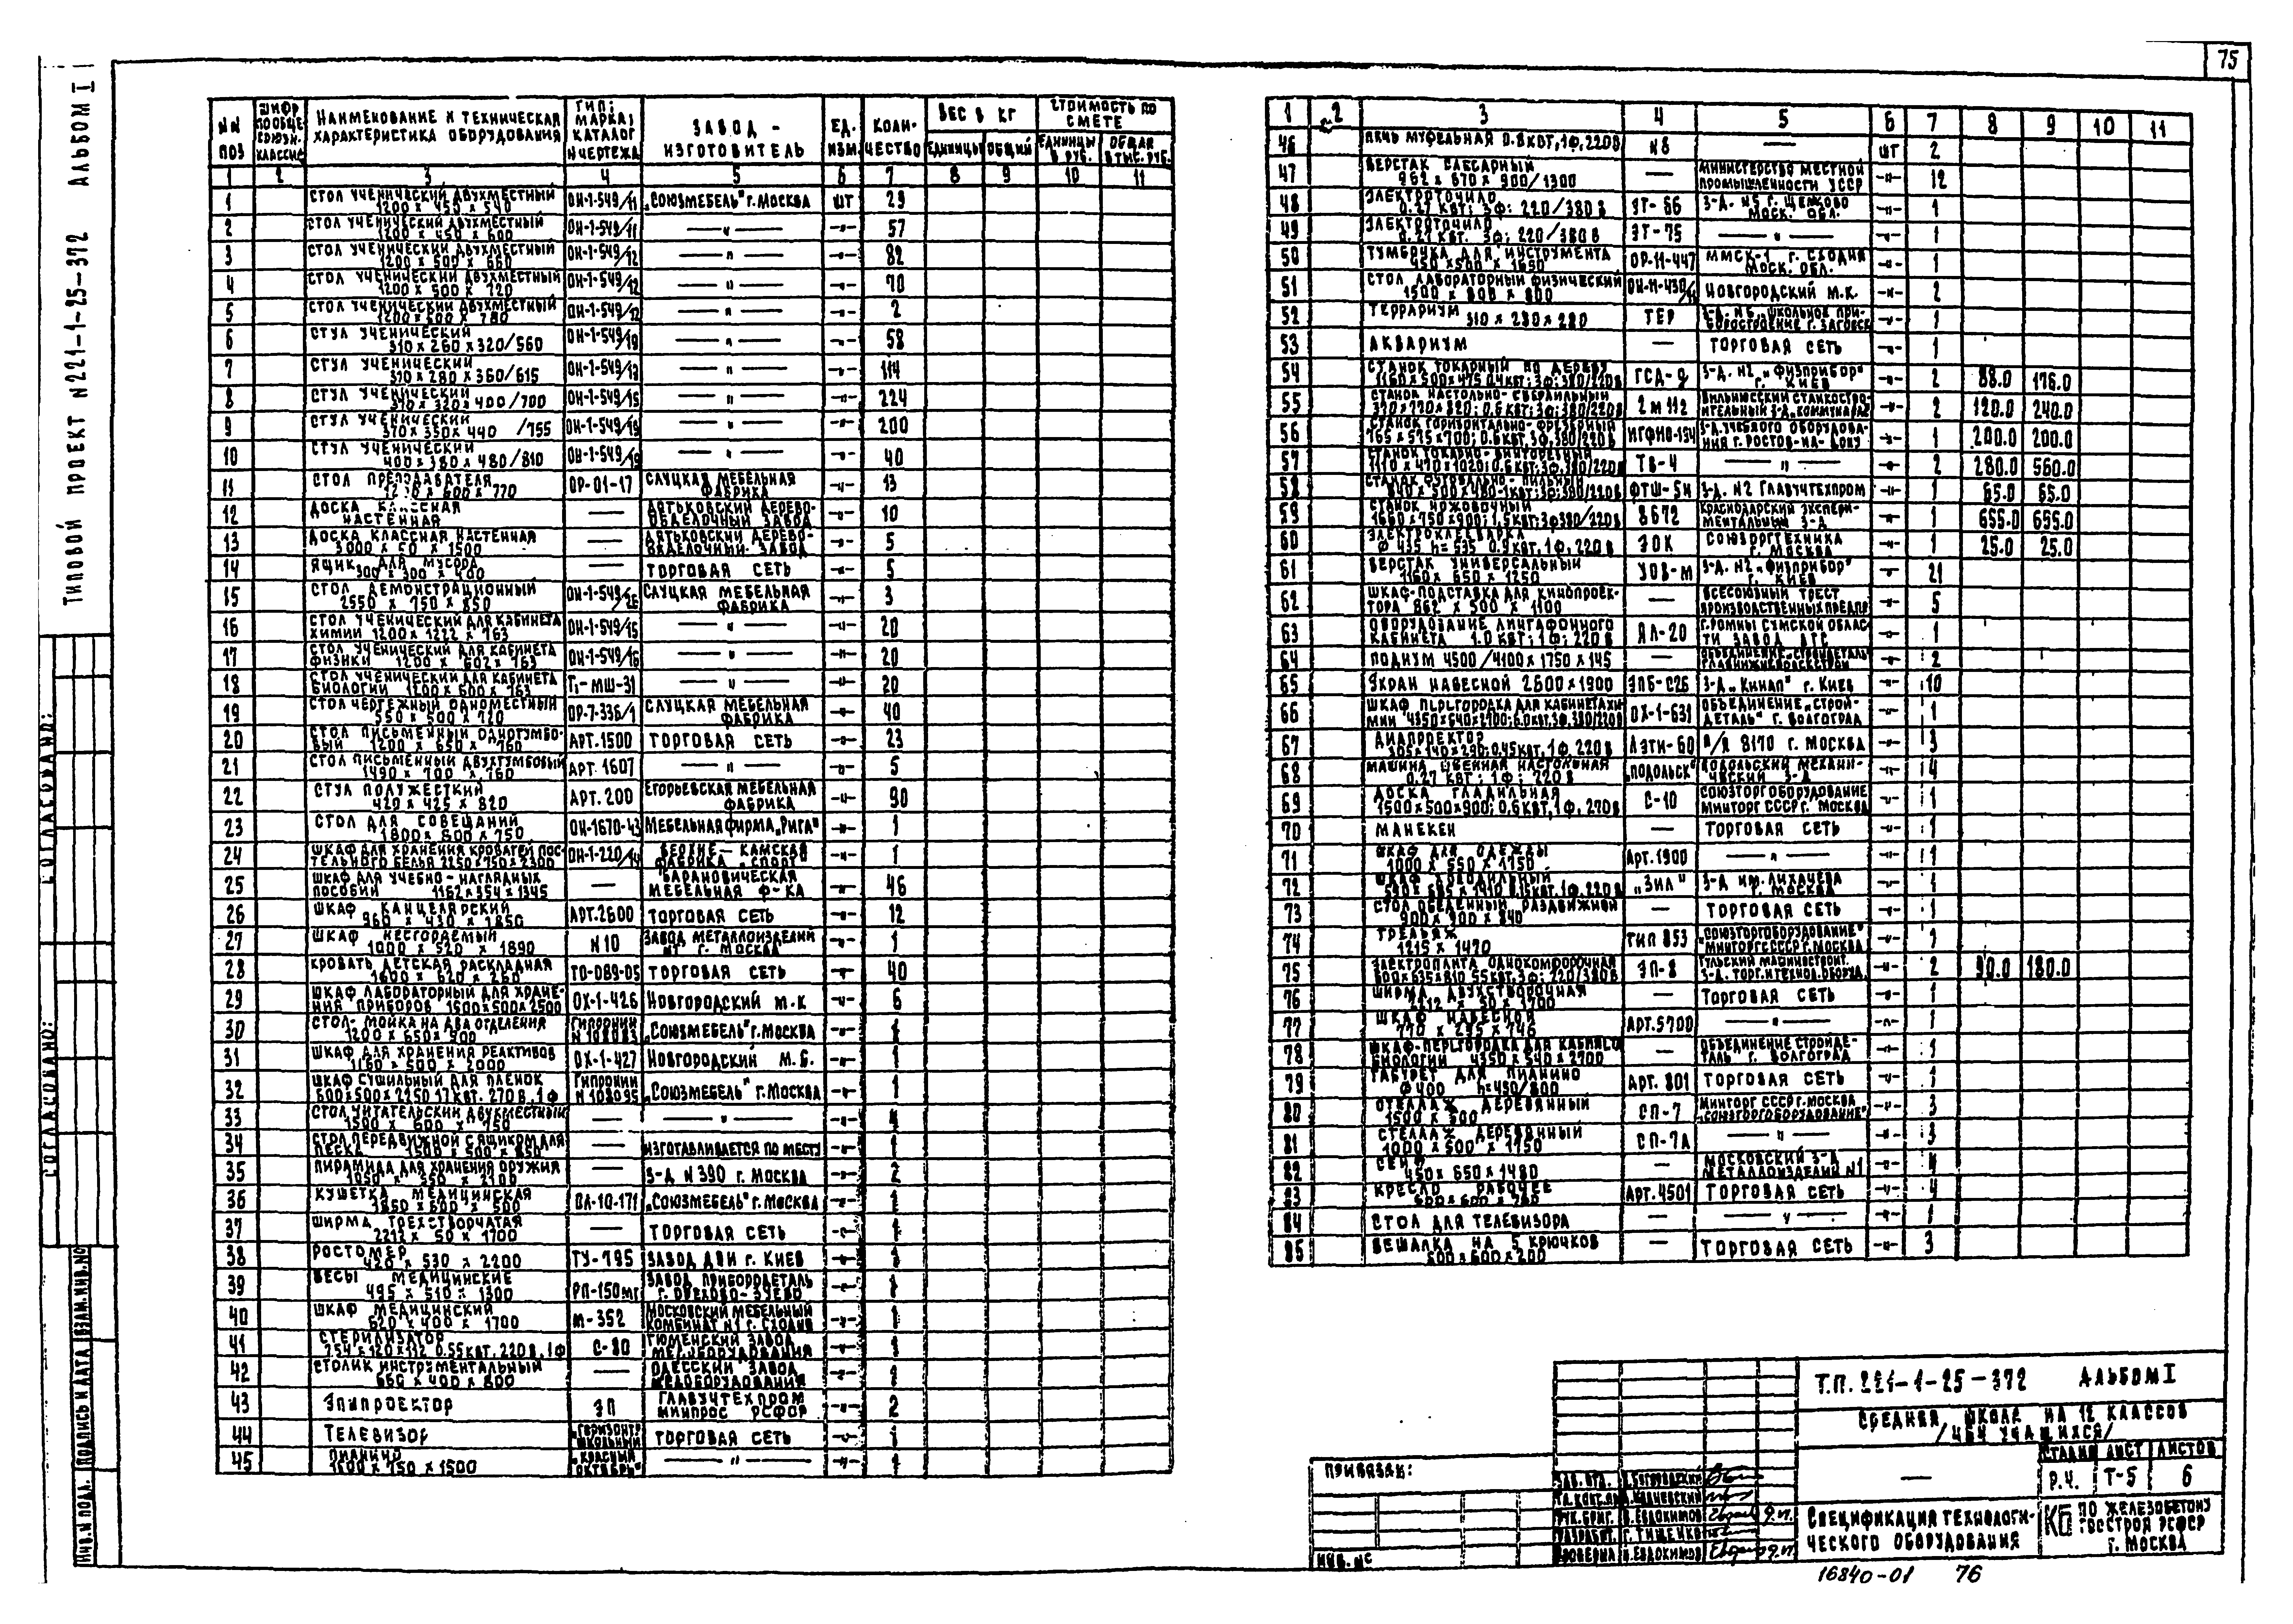 75
ТИПОВОЙ ПРОЕКТ N221-1-25-372 АЛЬБОМ I
СОГЛАСОВАНО:
СОГЛАСОВАНО:
ИНВ.N ПОДЛ. ПОДПИСЬ И ДАТА ВЗАМ.ИНВ.N
NN ПОЗ ШИФР ПО ОБЩЕСОЮЗН. КЛАССИФ. НАИМЕНОВАНИЕ И ТЕХНИЧЕСКАЯ ХАРАКТЕРИСТИКА ОБОРУДОВАНИЯ ТИП; МАРКА; КАТАЛОГ N ЧЕРТЕЖА ЗАВОД - ИЗГОТОВИТЕЛЬ ЕД. ИЗМ. КОЛИЧЕСТВО ВЕС В КГ ЕДИНИЦЫ ОБЩИЙ СТОИМОСТЬ ПО СМЕТЕ ЕДИНИЦЫ В РУБ. ОБЩАЯ В ТЫС. РУБ.
1 2 3 4 5 6 7 8 9 10 11
1 СТОЛ УЧЕНИЧЕСКИЙ ДВУХМЕСТНЫЙ 1200 x 450 x 540 ОН-1-549/11 „СОЮЗМЕБЕЛЬ" Г. МОСКВА ШТ 29
2 СТОЛ УЧЕНИЧЕСКИЙ ДВУХМЕСТНЫЙ 1200 x 450 x 600 ОН-1-549/11 —"— -"- 57
3 СТОЛ УЧЕНИЧЕСКИЙ ДВУХМЕСТНЫЙ 1200 x 500 x 660 ОН-1-549/12 —"— -"- 82
4 СТОЛ УЧЕНИЧЕСКИЙ ДВУХМЕСТНЫЙ 1200 x 500 x 720 ОН-1-549/12 —"— -"- 70
5 СТОЛ УЧЕНИЧЕСКИЙ ДВУХМЕСТНЫЙ ОН-1-549/12 —"— -"- 2
6 СТУЛ УЧЕНИЧЕСКИЙ 310 x 260 x 320/560 ОН-1-549/19 —"— -"- 58
7 СТУЛ УЧЕНИЧЕСКИЙ 310 x 280 x 360/615 ОН-1-549/19 —"— -"- 114
8 СТУЛ УЧЕНИЧЕСКИЙ 310 x 320 x 400/700 ОН-1-549/15 —"— -"- 224
9 СТУЛ УЧЕНИЧЕСКИЙ 370 x 350 x 440 /755 ОН-1-549/19 —"— -"- 200
10 СТУЛ УЧЕНИЧЕСКИЙ 400 x 380 x 480/810 ОН-1-549/19 —"— -"- 40
11 СТОЛ ПРЕПОДАВАТЕЛЯ ОР-01-17 СЛУЦКАЯ МЕБЕЛЬНАЯ ФАБРИКА -"- 13
12 ДОСКА КЛАССНАЯ НАСТЕННАЯ — ДЯТЬКОВСКИЙ ДЕРЕВО-ОБДЕЛОЧНЫЙ ЗАВОД -"- 10
13 ДОСКА КЛАССНАЯ НАСТЕННАЯ 3000 x 50 x 1500 — ДЯТЬКОВСКИЙ ДЕРЕВО-ОБДЕЛОЧНЫЙ ЗАВОД -"- 5
14 ЯЩИК ДЛЯ МУСОРА 300 x 300 x 400 — ТОРГОВАЯ СЕТЬ -"- 5
15 СТОЛ ДЕМОНСТРАЦИОННЫЙ 2550 x 750 x 850 ОН-1-549/26 СЛУЦКАЯ МЕБЕЛЬНАЯ ФАБРИКА -"- 3
16 СТОЛ УЧЕНИЧЕСКИЙ ДЛЯ КАБИНЕТА ХИМИИ 1200 x 1222 x 763 ОН-1-549/15 —"— -"- 20
17 СТОЛ УЧЕНИЧЕСКИЙ ДЛЯ КАБИНЕТА ФИЗИКИ 1200 x 602 x 763 ОН-1-549/16 —"— -"- 20
18 СТОЛ УЧЕНИЧЕСКИЙ ДЛЯ КАБИНЕТА БИОЛОГИИ 1200 x 600 x 763 Т1-МШ-31 —"— -"- 20
19 СТОЛ ЧЕРТЕЖНЫЙ ОДНОМЕСТНЫЙ 550 x 500 x 720 ОР-7-336/1 СЛУЦКАЯ МЕБЕЛЬНАЯ ФАБРИКА -"- 40
20 СТОЛ ПИСЬМЕННЫЙ ОДНОТУМБОВЫЙ 1200 x 650 x 760 АРТ.1500 ТОРГОВАЯ СЕТЬ -"- 23
21 СТОЛ ПИСЬМЕННЫЙ ДВУХТУМБОВЫЙ 1490 x 700 x 760 АРТ.1607 —"— -"- 5
22 СТУЛ ПОЛУЖЕСТКИЙ 420 x 425 x 820 АРТ.200 ЕГОРЬЕВСКАЯ МЕБЕЛЬНАЯ ФАБРИКА -"- 90
23 СТОЛ ДЛЯ СОВЕЩАНИЙ 1800 x 800 x 750 ОН-1670-43 МЕБЕЛЬНАЯ ФИРМА „РИГА" -"- 1
24 ШКАФ ДЛЯ ХРАНЕНИЯ КРОВАТЕЙ ПОСТЕЛЬНОГО БЕЛЬЯ 2250x750x2300 ОН-1-220/14 ВЕРХНЕ-КАМСКАЯ ФАБРИКА „СПОРТ" -"- 1
25 ШКАФ ДЛЯ УЧЕБНО-НАГЛЯДНЫХ ПОСОБИЙ 1162 x 354 x 1345 — БАРАНОВИЧЕСКАЯ МЕБЕЛЬНАЯ Ф-КА -"- 46
26 ШКАФ КАНЦЕЛЯРСКИЙ 960 x 430 x 1850 АРТ.2600 ТОРГОВАЯ СЕТЬ -"- 12
27 ШКАФ НЕСГОРАЕМЫЙ 1000 x 520 x 1890 N10 ЗАВОД МЕТАЛЛОИЗДЕЛИЙ N1 Г. МОСКВА -"- 1
28 КРОВАТЬ ДЕТСКАЯ РАСКЛАДНАЯ 1600 x 620 x 260 ТО-089-05 ТОРГОВАЯ СЕТЬ -"- 40
29 ШКАФ ЛАБОРАТОРНЫЙ ДЛЯ ХРАНЕНИЯ ПРИБОРОВ 1500x500x2500 ОХ-1-426 НОВГОРОДСКИЙ М.К -"- 6
30 СТОЛ-МОЙКА НА ДВА ОТДЕЛЕНИЯ 1200 x 650 x 900 ГИПРОНИИ N 108083 „СОЮЗМЕБЕЛЬ" Г. МОСКВА -"- 1
31 ШКАФ ДЛЯ ХРАНЕНИЯ РЕАКТИВОВ 1160 x 500 x 2000 ОХ-1-427 НОВГОРОДСКИЙ М.Б. -"- 1
32 ШКАФ СУШИЛЬНЫЙ ДЛЯ ПЛЕНОК ГИПРОНИИ N 108095 „СОЮЗМЕБЕЛЬ" Г. МОСКВА -"- 1
33 СТОЛ ЧИТАТЕЛЬСКИЙ ДВУХМЕСТНЫЙ 1500 x 600 x 750 — —"— -"- 4
34 СТОЛ ПЕРЕДВИЖНОЙ С ЯЩИКОМ ДЛЯ ПЕСКА 1500 x 500 x 850 — ИЗГОТАВЛИВАЕТСЯ ПО МЕСТУ -"- 1
35 ПИРАМИДА ДЛЯ ХРАНЕНИЯ ОРУЖИЯ 1050 x 350 x 2100 — З-Д N 390 Г. МОСКВА -"- 2
36 КУШЕТКА МЕДИЦИНСКАЯ 1850 x 600 x 500 ВЛ-10-171 „СОЮЗМЕБЕЛЬ" Г. МОСКВА -"- 1
37 ШИРМА ТРЕХСТВОРЧАТАЯ 2212 x 50 x 1700 — ТОРГОВАЯ СЕТЬ -"- 1
38 РОСТОМЕР 420 x 530 x 2200 ТУ-795 ЗАВОД ДВИ Г. КИЕВ -"- 1
39 ВЕСЫ МЕДИЦИНСКИЕ 495 x 510 x 1300 РП-150МГ ЗАВОД ПРИБОРДЕТАЛЬ Г. ОРЕХОВО-ЗУЕВО -"- 1
40 ШКАФ МЕДИЦИНСКИЙ 620 x 400 x 1700 М-352 МОСКОВСКИЙ МЕБЕЛЬНЫЙ КОМБИНАТ N1 Г. СХОДНЯ -"- 1
41 СТЕРИЛИЗАТОР 254x120x112 0.55КВТ. 220В, 1Ф С-80 ТЮМЕНСКИЙ ЗАВОД МЕД.ОБОРУДОВАНИЯ -"- 1
42 СТОЛИК ИНСТРУМЕНТАЛЬНЫЙ 660 x 400 x 800 — ОДЕССКИЙ ЗАВОД МЕДОБОРУДОВАНИЯ -"- 1
43 ЭПИПРОЕКТОР ЭП ГЛАВУЧТЕХПРОМ МИНПРОС РСФСР -"- 2
44 ТЕЛЕВИЗОР „ГОРИЗОНТ" ШКОЛЬНЫЙ ТОРГОВАЯ СЕТЬ -"- 1
45 ПИАНИНО 1500 x 750 x 1500 „КРАСНЫЙ ОКТЯБРЬ" —"— -"- 1
1 2 3 4 5 6 7 8 9 10 11
46 ПЕЧЬ МУФЕЛЬНАЯ 0.8 КВТ, 1Ф, 220В N8 — ШТ 2
47 ВЕРСТАК СЛЕСАРНЫЙ 962 x 670 x 900/1300 — МИНИСТЕРСТВО МЕСТНОЙ ПРОМЫШЛЕННОСТИ УССР -"- 12
48 ЭЛЕКТРОТОЧИЛО 0.27 КВТ; 3Ф; 220/380 В ЭТ-66 З-Д. N5 Г. ЩЕЛКОВО МОСК. ОБЛ. -"- 1
49 ЭЛЕКТРОТОЧИЛО 0.27 КВТ. 3Ф; 220/380 В ЭТ-75 —"— -"- 1
50 ТУМБОЧКА ДЛЯ ИНСТРУМЕНТА 450 x 500 x 1690 ОР-11-447 ММСК-1 Г. СХОДНЯ МОСК. ОБЛ. -"- 1
51 СТОЛ ЛАБОРАТОРНЫЙ ФИЗИЧЕСКИЙ 1500 x 800 x 800 НОВГОРОДСКИЙ М.К. -"- 2
52 ТЕРРАРИУМ 310 x 230 x 280 ТЕР З-Д. N5 „ШКОЛЬНОЕ ПРИБОРОСТРОЕНИЕ Г. ЗАГОРСК -"- 1
53 АКВАРИУМ — ТОРГОВАЯ СЕТЬ -"- 1
54 СТАНОК ТОКАРНЫЙ ПО ДЕРЕВУ 1160x500x475 0.4 КВТ; 3Ф; 380/220В ГСД-9 З-Д. N2 „ФИЗПРИБОР" Г. КИЕВ -"- 2 88.0 176.0
55 СТАНОК НАСТОЛЬНО-СВЕРЛИЛЬНЫЙ 370x770x820; 0.6 КВТ; 3Ф; 380/220В 2М112 ВИЛЬНЮССКИЙ СТАНКОСТРОИТЕЛЬНЫЙ З-Д. „КОММУНАРАС" -"- 2 120.0 240.0
56 СТАНОК ГОРИЗОНТАЛЬНО-ФРЕЗЕРНЫЙ 765x575x700; 0.6 КВТ, 3Ф, 380/220В З-Д. УЧЕБНОГО ОБОРУДОВАНИЯ Г. РОСТОВ-НА-ДОНУ -"- 1 200.0 200.0
57 СТАНОК ТОКАРНО-ВИНТОРЕЗНЫЙ 1110x470x1020; 0.6 КВТ. 3Ф, 380/220В ТВ-4 —"— -"- 2 280.0 560.0
58 СТАНОК ФУГОВАЛЬНО-ПИЛЬНЫЙ 840x500x480-1 КВТ; 3Ф; 380/220В ФПШ-5Н З-Д. N2 ГЛАВУЧТЕХПРОМ -"- 1 65.0 65.0
59 СТАНОК НОЖОВОЧНЫЙ 1660x750x900; 1.5 КВТ; 3Ф 380/220В 8672 КРАСНОДАРСКИЙ ЭКСПЕРИМЕНТАЛЬНЫЙ З-Д -"- 1 655.0 655.0
60 ЭЛЕКТРОКЛЕЕВАРКА Ф 435 h=535 0.9 КВТ, 1Ф, 220В ЭОК СОЮЗОРГТЕХНИКА Г. МОСКВА -"- 1 25.0 25.0
61 ВЕРСТАК УНИВЕРСАЛЬНЫЙ 1160 x 650 x 1250 УОВ-М З-Д. N2 „ФИЗПРИБОР" Г. КИЕВ -"- 21
62 ШКАФ-ПОДСТАВКА ДЛЯ КИНОПРОЕКТОРА 862 x 500 x 1100 — ВСЕСОЮЗНЫЙ ТРЕСТ ПРОИЗВОДСТВЕННЫХ ПРЕДПР -"- 5
63 ОБОРУДОВАНИЕ ЛИНГАФОННОГО КАБИНЕТА 1.0 КВТ; 1Ф; 220В ЯЛ-20 Г. РОМНЫ СУМСКОЙ ОБЛАСТИ ЗАВОД АТС -"- 1
64 ПОДИУМ 4500/4100 x 1750 x 145 — -"- 2
65 ЭКРАН НАВЕСНОЙ 2600x1900 ЭПБ-С2Б З-Д „КИНАП" Г. КИЕВ -"- 10
66 ШКАФ ПЕРЕГОРОДКА ДЛЯ КАБИНЕТА ХИМИИ 4350x640x2700; 6.0 КВТ, 3Ф, 380/220В ОХ-1-631 ОБЪЕДИНЕНИЕ „СТРОЙДЕТАЛЬ" Г. ВОЛГОГРАД -"- 1
67 ДИАПРОЕКТОР 305x140x290; 0.45 КВТ, 1Ф 220В ЛЭТИ-60 П/Я 8170 Г. МОСКВА -"- 3
68 МАШИНА ШВЕЙНАЯ НАСТОЛЬНАЯ 0.27 КВТ; 1Ф; 220В „ПОДОЛЬСК" ПОДОЛЬСКИЙ МЕХАНИЧЕСКИЙ З-Д -"- 4
69 ДОСКА ГЛАДИЛЬНАЯ 1500x500x900; 0.6 КВТ, 1Ф, 220В С-10 СОЮЗТОРГОБОРУДОВАНИЕ МИНТОРГ СССР Г. МОСКВА -"- 1
70 МАНЕКЕН — ТОРГОВАЯ СЕТЬ -"- 1
71 ШКАФ ДЛЯ ОДЕЖДЫ 1000 x 550 x 1750 АРТ.1900 —"— -"- 1
72 ШКАФ ХОЛОДИЛЬНЫЙ „ЗИЛ" З-Д ИМ. ЛИХАЧЕВА Г. МОСКВА -"- 1
73 СТОЛ ОБЕДЕННЫЙ РАЗДВИЖНОЙ 900 x 900 x 840 — ТОРГОВАЯ СЕТЬ -"- 1
74 ТРЕЛЬЯЖ 1215 x 1470 ТИП 853 „СОЮЗТОРГОБОРУДОВАНИЕ" МИНТОРГ СССР Г. МОСКВА -"- 1
75 ЭЛЕКТРОПЛИТА ОДНОКОМФОРОЧНАЯ ЭП-8 ТУЛЬСКИЙ МАШИНОСТРОИТ. З-Д. -"- 2 90.0 180.0
76 ШИРМА ДВУХСТВОРЧАТАЯ 2212 x 50 x 1700 — ТОРГОВАЯ СЕТЬ -"- 1
77 ШКАФ НАВЕСНОЙ 770 x 295 x 746 АРТ.5700 —"— -"- 1
78 ШКАФ-ПЕРЕГОРОДКА ДЛЯ КАБИНЕТА БИОЛОГИИ 4350 x 540 x 2700 — ОБЪЕДИНЕНИЕ СТРОЙДЕТАЛЬ Г. ВОЛГОГРАД -"- 1
79 ТАБУРЕТ ДЛЯ ПИАНИНО Ф400 h=450/800 АРТ. 801 ТОРГОВАЯ СЕТЬ -"- 1
80 СТЕЛЛАЖ ДЕРЕВЯННЫЙ 1500 x 500 СП-7 МИНТОРГ СССР Г. МОСКВА „СОЮЗТОРГОБОРУДОВАНИЕ" -"- 3
81 СТЕЛЛАЖ ДЕРЕВЯННЫЙ 1000 x 500 x 1750 СП-7А —"— -"- 3
82 СЕЙФ 450 x 650 x 1480 — МОСКОВСКИЙ З-Д МЕТАЛЛОИЗДЕЛИЙ N1 -"- 4
83 КРЕСЛО РАБОЧЕЕ 600 x 600 x 760 АРТ.4501 ТОРГОВАЯ СЕТЬ -"- 4
84 СТОЛ ДЛЯ ТЕЛЕВИЗОРА — —"— -"- 1
85 ВЕШАЛКА НА 5 КРЮЧКОВ 500 x 600 x 200 — ТОРГОВАЯ СЕТЬ -"- 3
Т.П. 221-1-25-372 АЛЬБОМ I
СРЕДНЯЯ ШКОЛА НА 12 КЛАССОВ /464 УЧАЩИХСЯ/
СТАДИЯ ЛИСТ ЛИСТОВ
— Р.Ч. Т-5 6
СПЕЦИФИКАЦИЯ ТЕХНОЛОГИЧЕСКОГО ОБОРУДОВАНИЯ
КБ ПО ЖЕЛЕЗОБЕТОНУ ГОССТРОЯ РСФСР Г. МОСКВА
ПРИВЯЗАН:
ИНВ. N
НАЧ. ОТД.
ГЛ. КОНСТ.
РУК. БРИГ. В. ЕВДОКИМОВ
РАЗРАБОТ. Г. ТИЩЕНКО
ПРОВЕРИЛ В. ЕВДОКИМОВ
16840-01 76